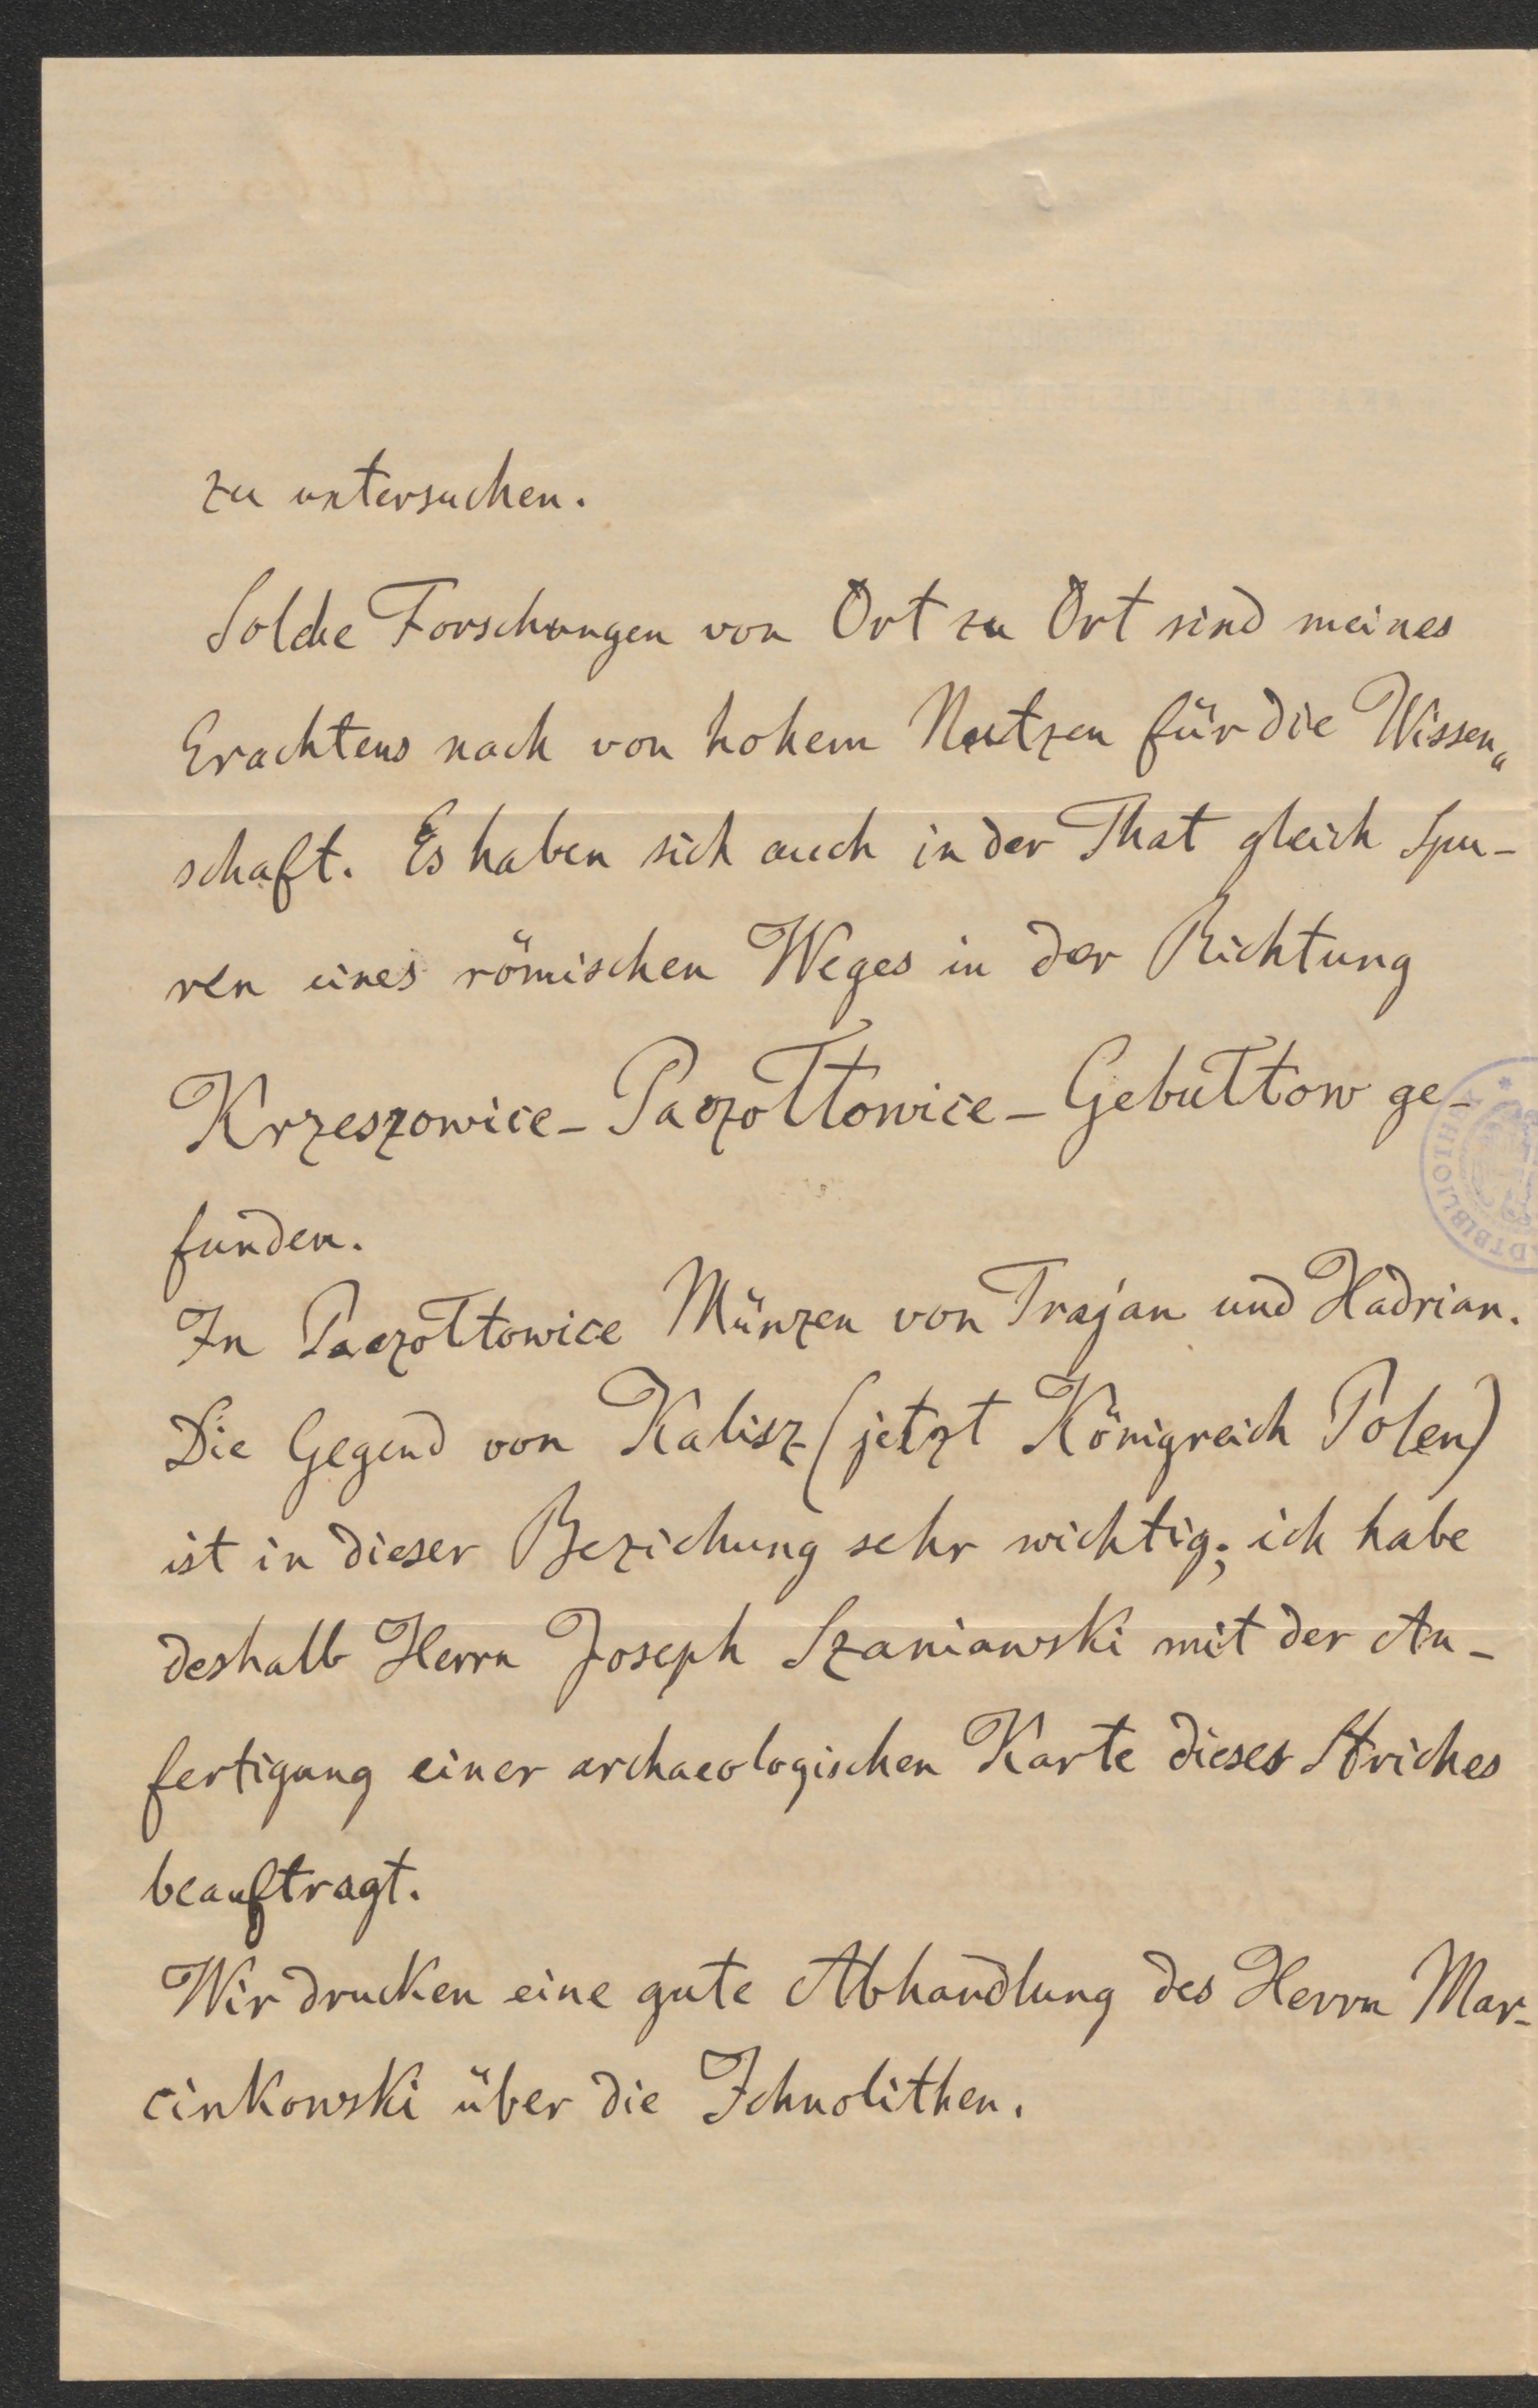 zu untersuchen.
Solche Forschungen von Ort zu Ort sind meines
Erachtens nach von hohem Nutzen für die Wissen„
schaft. Es haben sich auch in der That gleich Spu-
ren eines römischen Weges in der Richtung
Krzeszowice - Paczołtowice - Gebułtow ge-
funden.
In Paczołtowice Münzen von Trajan und Hadrian.
Die Gegend von Kalisz (jetzt Königreich Polen)
ist in dieser Beziehung sehr wichtig; ich habe
deshalb Herrn Joseph Szaniawski mit der An-
fertigung einer archaeologischen Karte dieses Striches
beauftragt.
Wir drucken eine gute Abhandlung des Herrn Mar-
cinkowski über die Ichnolithen.